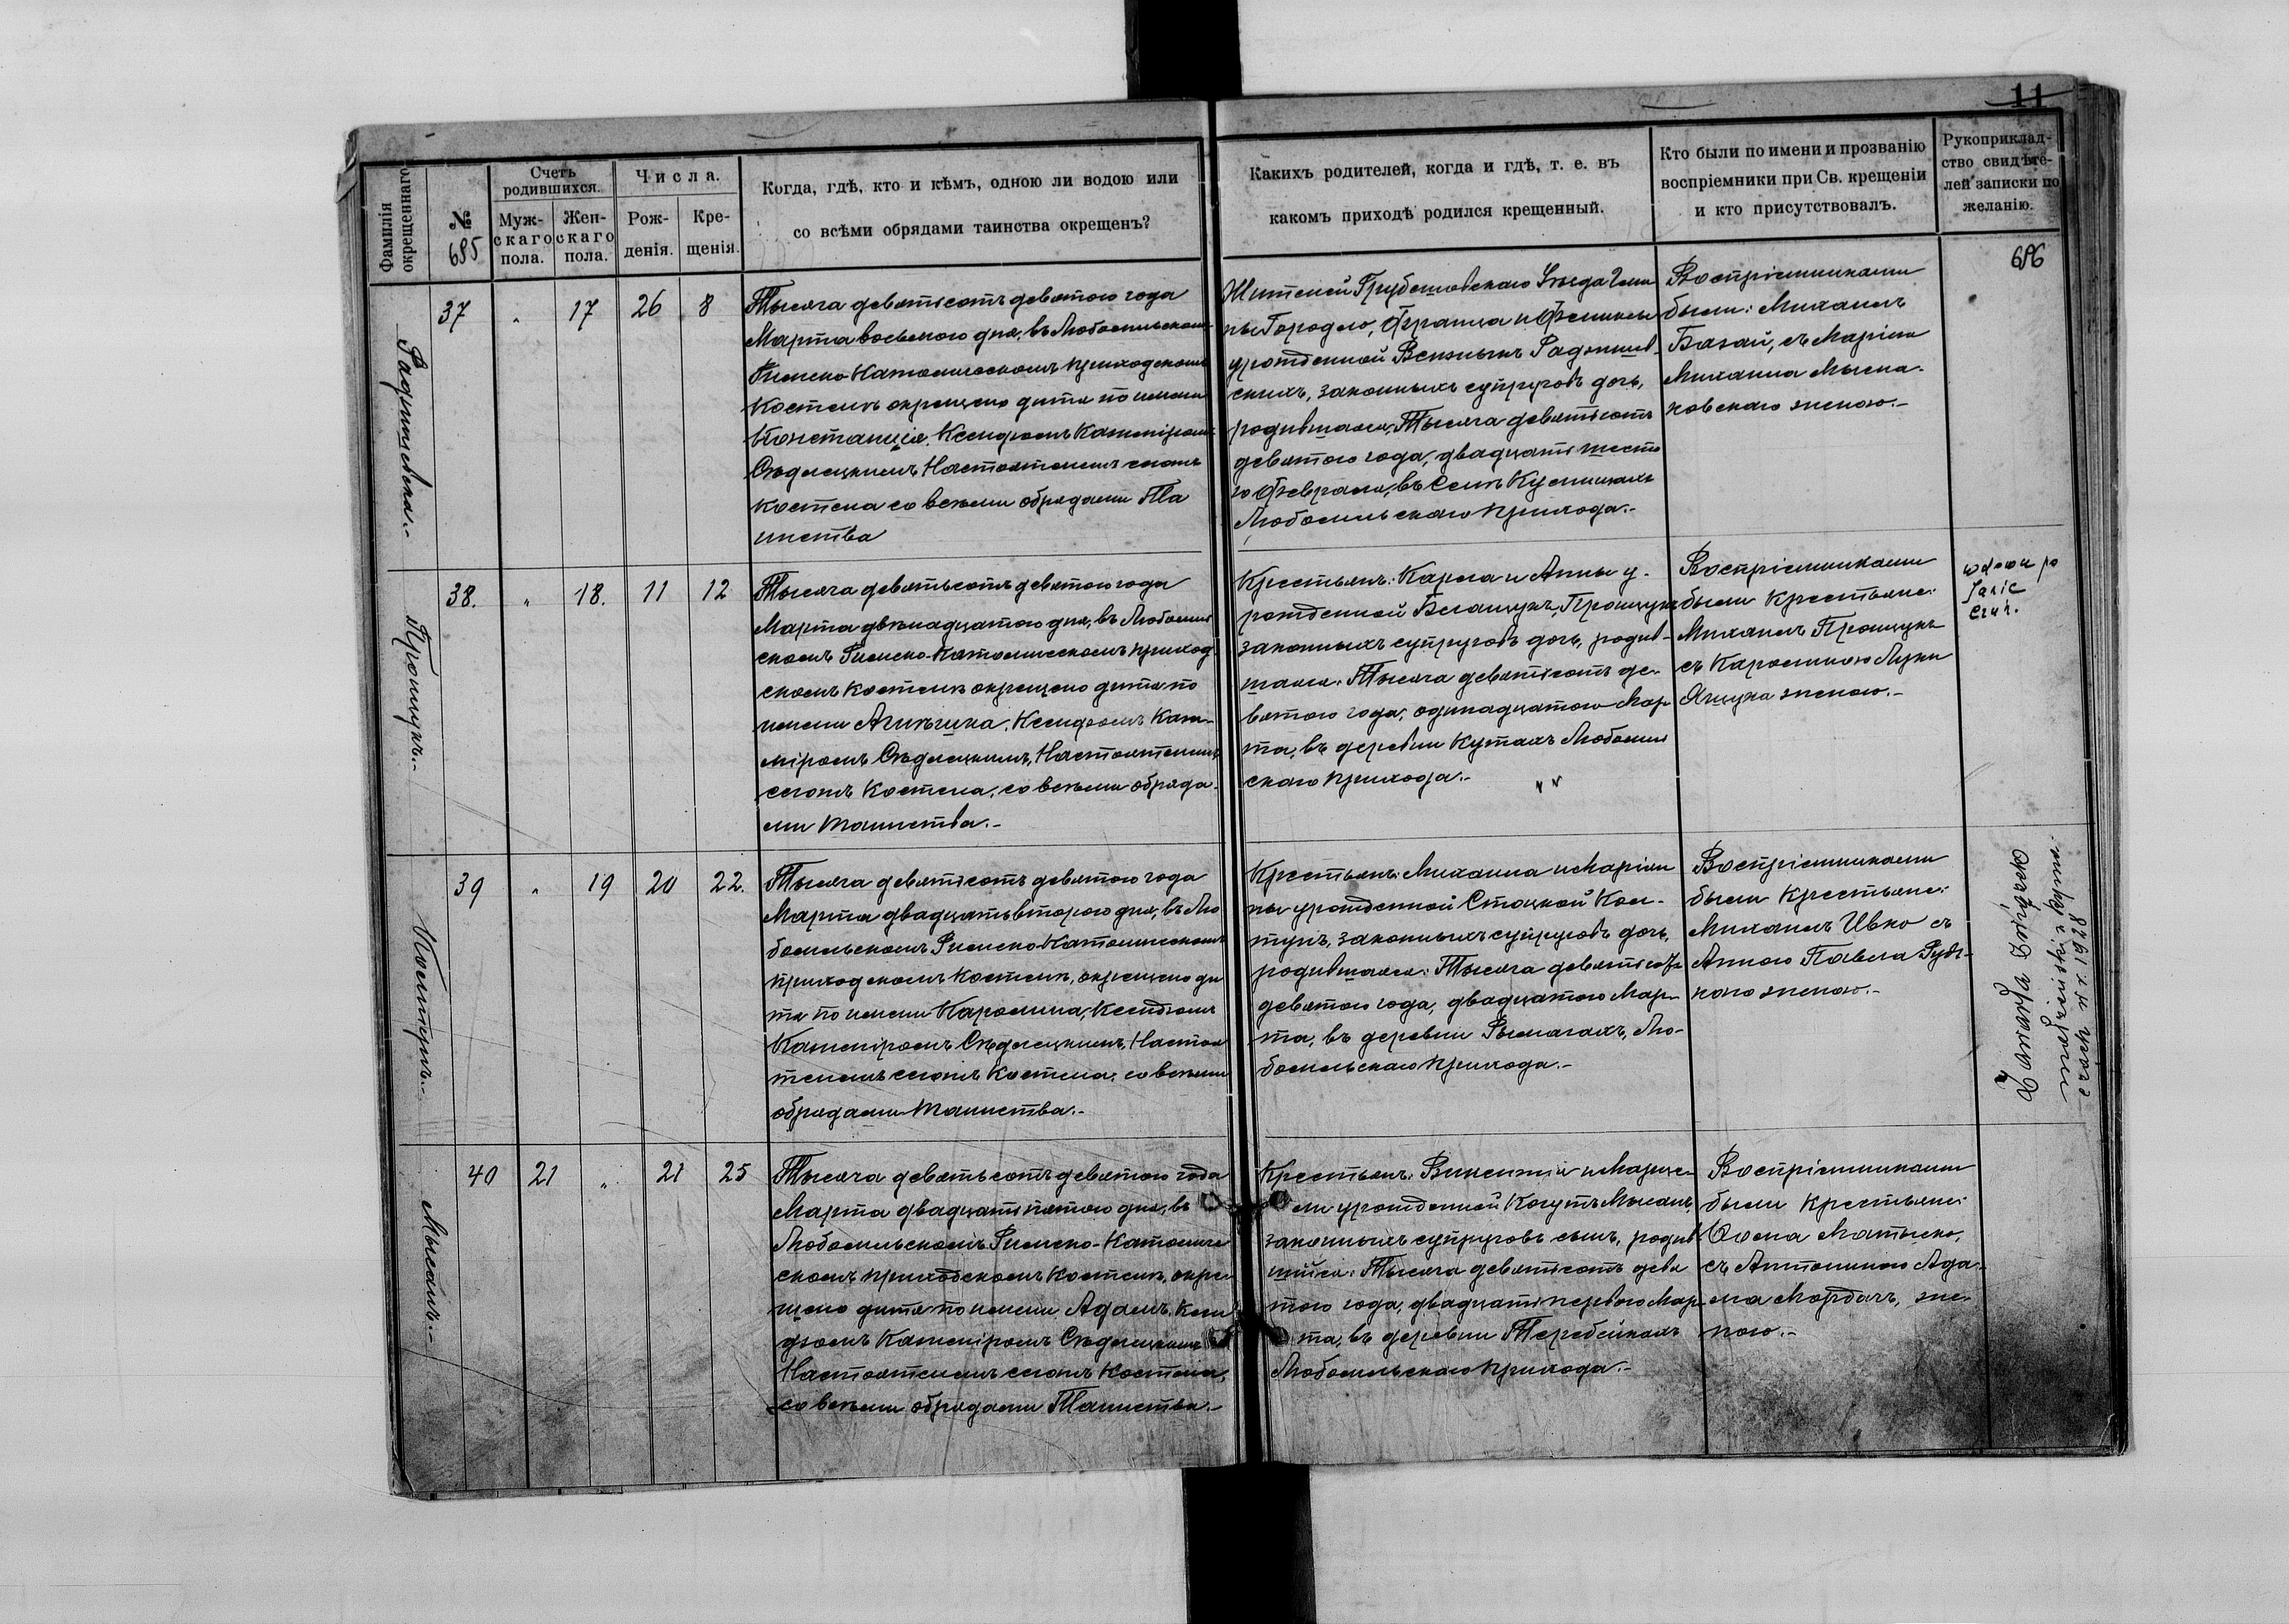 11
Фамилія окрещеннаго
№
685
Счетъ родившихся.
Муж-
скаго
пола.
Жен-
скаго
пола.
Числа.
Рож-
денія.
Кре-
щенія.
Когда, гдѣ, кто и кѣмъ, одною ли водою или
со всѣми обрядами таинства окрещенъ?
Какихъ родителей, когда и гдѣ, т. е. въ
какомъ приходѣ родился крещенный.
Кто были по имени и прозванію
воспріемники при Св. крещеніи
и кто присутствовалъ.
Рукоприклад-
ство свидѣте-
лей записки по
желанію.
686
37 " 17 26 8
Тысяча девятьсотъ девятого года
Марта восьмого дня, въ Любомльскомъ
Римско-Католическомъ приходскомъ
Костелѣ окрещено дитя по имени
Констанція, Ксендзомъ Казиміромъ
Сѣдлецкимъ Настоятелемъ сего
Костела со всѣми обрядами Та
инства
Жителей Грубешовскаго Уѣзда Гми
ны Городло, Франца и Феликсы
урожденной
скихъ, законныхъ супруговъ дочь,
родившаяся: Тысяча девятьсотъ
девятого года, двадцать шесто
го Февраля, въ Селѣ Куснищахъ
Любомльскаго прихода.-
Воспріемниками
были: Михаилъ
Базай, съ Маріею
Михаила
женою.-
38. " 18. 11 12
Процукъ.-
Тысяча девятьсотъ девятого года
Марта двѣнадцатого дня, въ Любомль
скомъ Римско-Католическомъ приход
скомъ Костелѣ окрещено дитя по
имени Ксендзомъ Кази-
міромъ Сѣдлецкимъ, Настоятелемъ
сего Костела, со всѣми обряда-
ми Таинства.-
Крестьянъ: Карла и Анны у-
рожденной Процукъ
законныхъ супруговъ дочь, родив-
шаяся: Тысяча девятьсотъ де-
вятого года, одинадцатого Мар
та, въ деревни Кутахъ Любомль
скаго прихода.-
Воспріемниками
были Крестьяне:
Михаилъ Процукъ
съ Каролиною Луки
Яцука женою.-
39 " 19 20 22.
Тысяча девятьсотъ девятого года
Марта двадцать второго дня, въ Лю
бомльскомъ Римско-Католическомъ
приходскомъ Костелѣ, окрещено ди
тя по имени Каролина, Ксендзомъ
Казиміромъ Сѣдлецкимъ, Настоя
телемъ сего Костела, со всѣми
обрядами Таинства.-
Крестьянъ: Михаила и Маріан
ны урожденной Стоцкой Кол-
тунъ, законныхъ супруговъ дочь,
родившаяся: Тысяча девятьсотъ
девятого года, двадцатого Мар-
та, въ деревни Рымачахъ, Лю-
бомльскаго прихода.-
Воспріемниками
были Крестьяне:
Михаилъ Ивко съ
Анною Павла Руд-
кого женою.-
40 21 " 21 25
Мысакъ.-
Тысяча девятьсотъ девятого года
Марта двадцать пятого дня, въ
Любомльскомъ Римско-Католиче
скомъ приходскомъ Костелѣ, окре
щено дитя по имени Адамъ, Ксен
дзомъ Казиміромъ Сѣдлецкимъ
Настоятелемъ сего Костела,
со всѣми обрядами Таинства.-
Крестьянъ: Викентія и Марце-
ли урожденной Когутъ Мысакъ,
законныхъ супруговъ сынъ, родив
шійся: Тысяча девятьсотъ девя
того года, двадцать первого Мар
та, въ деревни Теребейкахъ
Любомльскаго прихода.-
Воспріемниками
были Крестьяне:
Ѳома
съ Антониною Ада-
ма же
ною.-